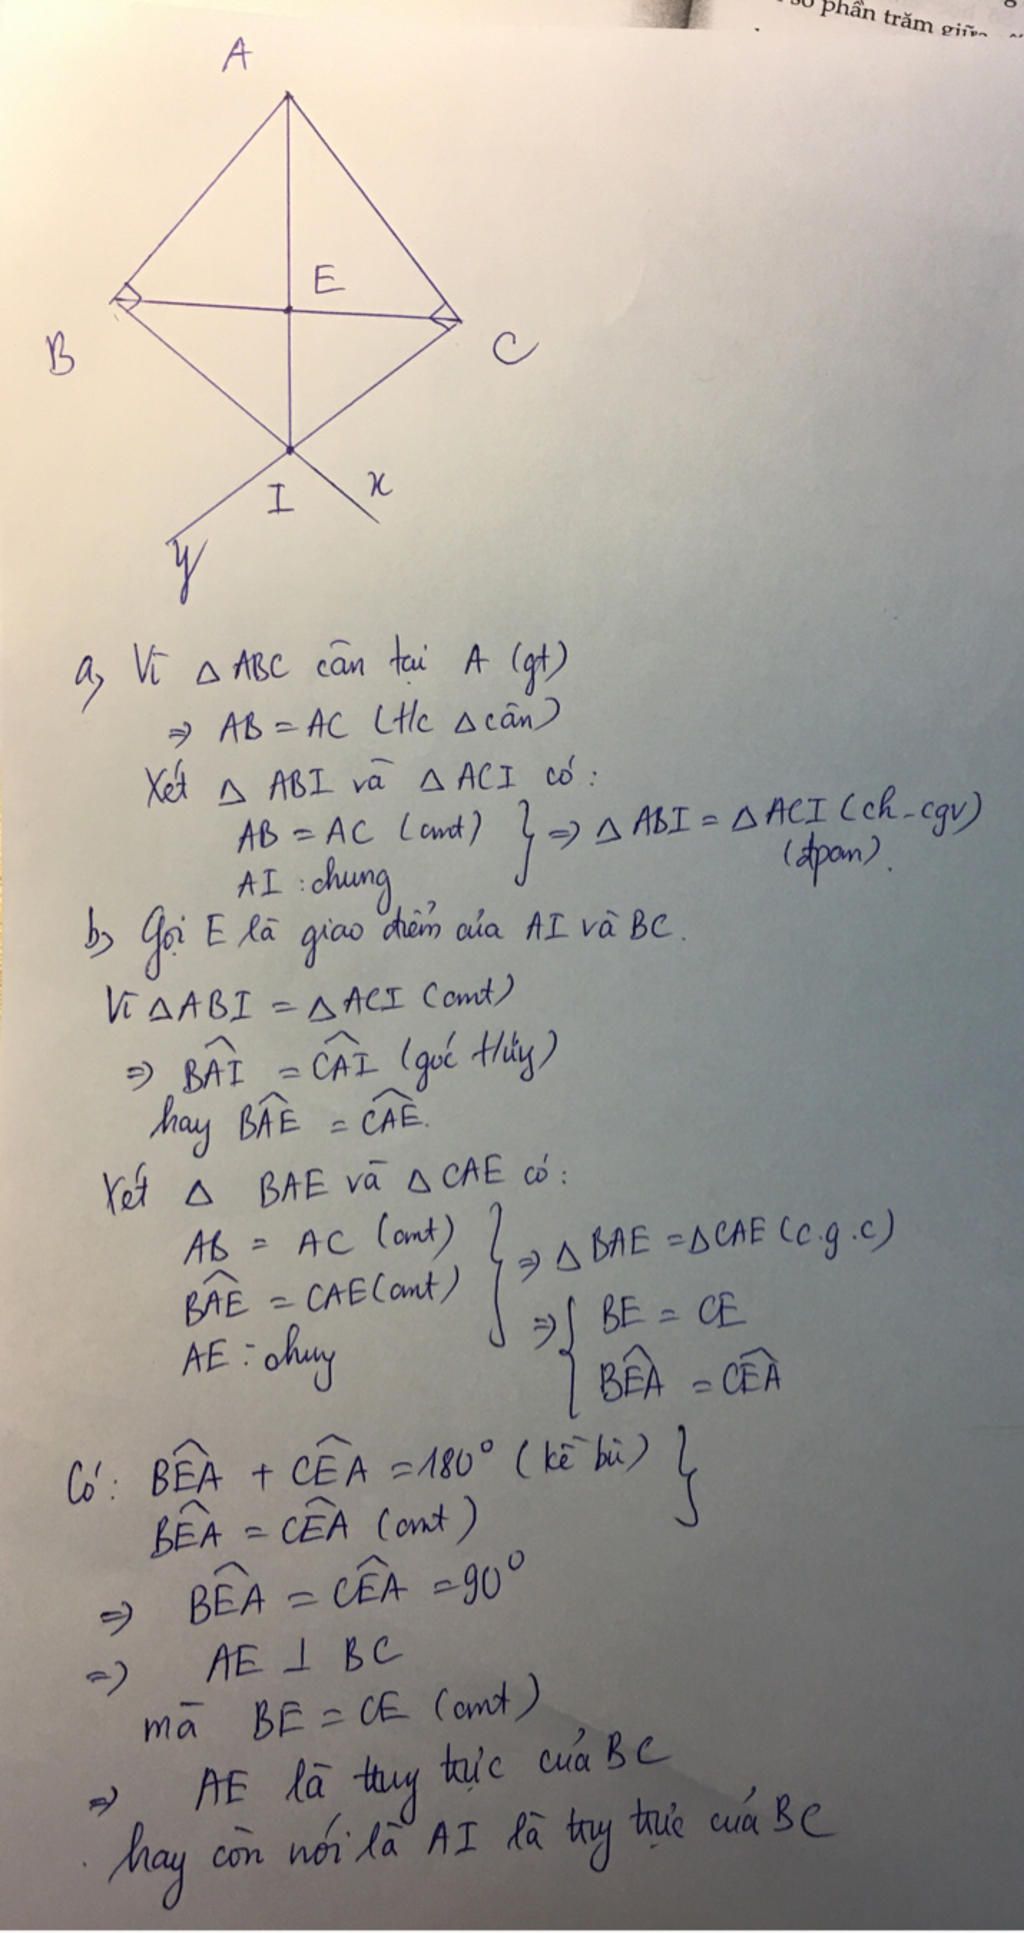 số phần trăm giữa
A
E
B
C
I
x
y
a, Vì △ ABC cân tại A (gt)
⇒ AB = AC (t/c △ cân)
Xét △ ABI và △ ACI có:
AB = AC (cmt) } ⇒ △ ABI = △ ACI (ch-cgv)
AI : chung (đpcm).
b, Gọi E là giao điểm của AI và BC.
Vì △ABI = △ACI (cmt)
⇒ \widehat{BAI} = \widehat{CAI} (góc t/ứng)
hay \widehat{BAE} = \widehat{CAE}.
Xét △ BAE và △ CAE có:
AB = AC (cmt) } ⇒ △ BAE = △CAE (c.g.c)
\widehat{BAE} = CAE (cmt) ⇒ { BE = CE
AE : chung \widehat{BEA} = \widehat{CEA}
Có: \widehat{BEA} + \widehat{CEA} = 180° (kề bù) }
\widehat{BEA} = \widehat{CEA} (cmt)
⇒ \widehat{BEA} = \widehat{CEA} = 90°
⇒ AE ⊥ BC
mà BE = CE (cmt)
⇒ AE là trung trực của BC
hay còn nói là AI là trung trực của BC